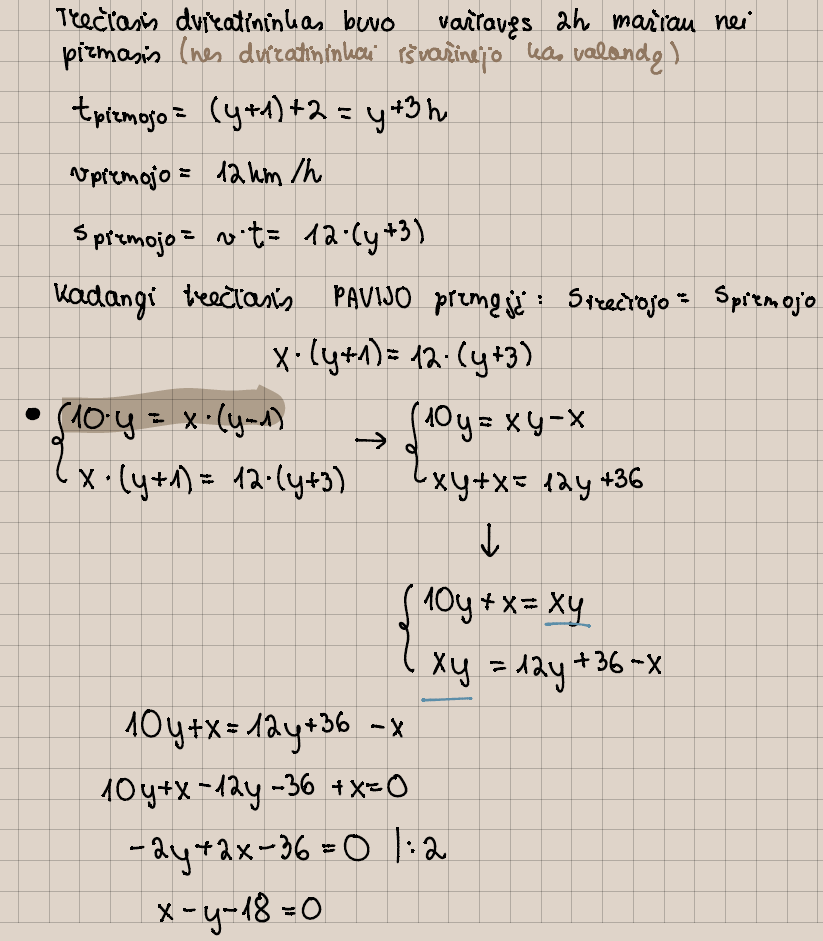 Trečiasis dviratininkas buvo važiavęs 2h mažiau nei
pirmasis (nes dviratininkai išvažinėjo kas valandą)
t pirmojo = (y+1)+2 = y+3 h
v pirmojo = 12 km/h
s pirmojo = v·t = 12·(y+3)
Kadangi trečiasis PAVIJO pirmąjį: s trečiojo = s pirmojo
x·(y+1) = 12·(y+3)
• { 10·y = x·(y-1) → { 10y = xy - x
x·(y+1) = 12·(y+3) xy + x = 12y + 36
↓
{ 10y + x = xy
xy = 12y + 36 - x
10y + x = 12y + 36 - x
10y + x - 12y - 36 + x = 0
-2y + 2x - 36 = 0 |:2
x - y - 18 = 0